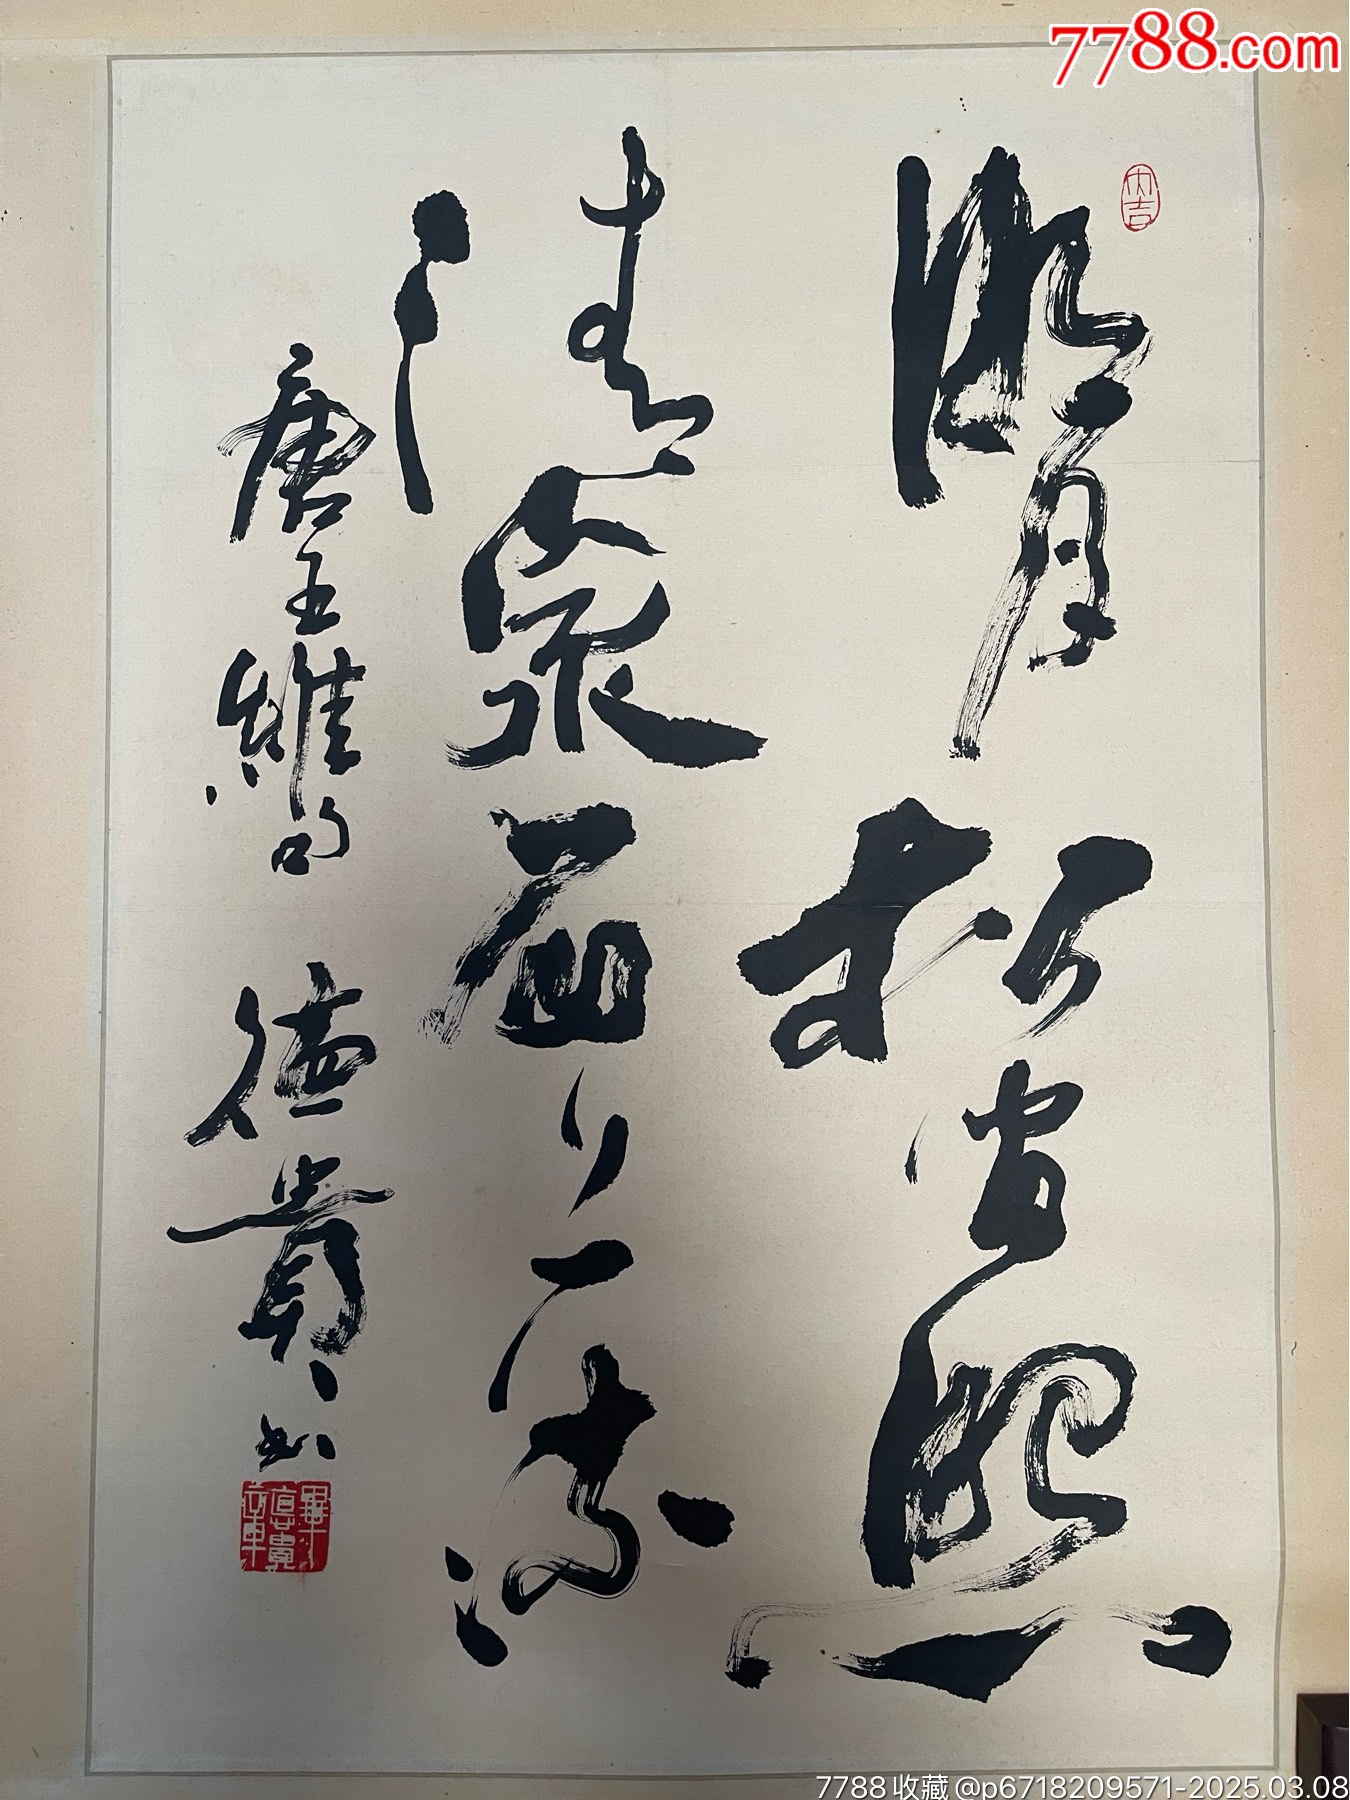 7788.com
明月松间照
清泉石上流
唐王维句
德贵书
畢德貴章
7788收藏@p6718209571-2025.03.08